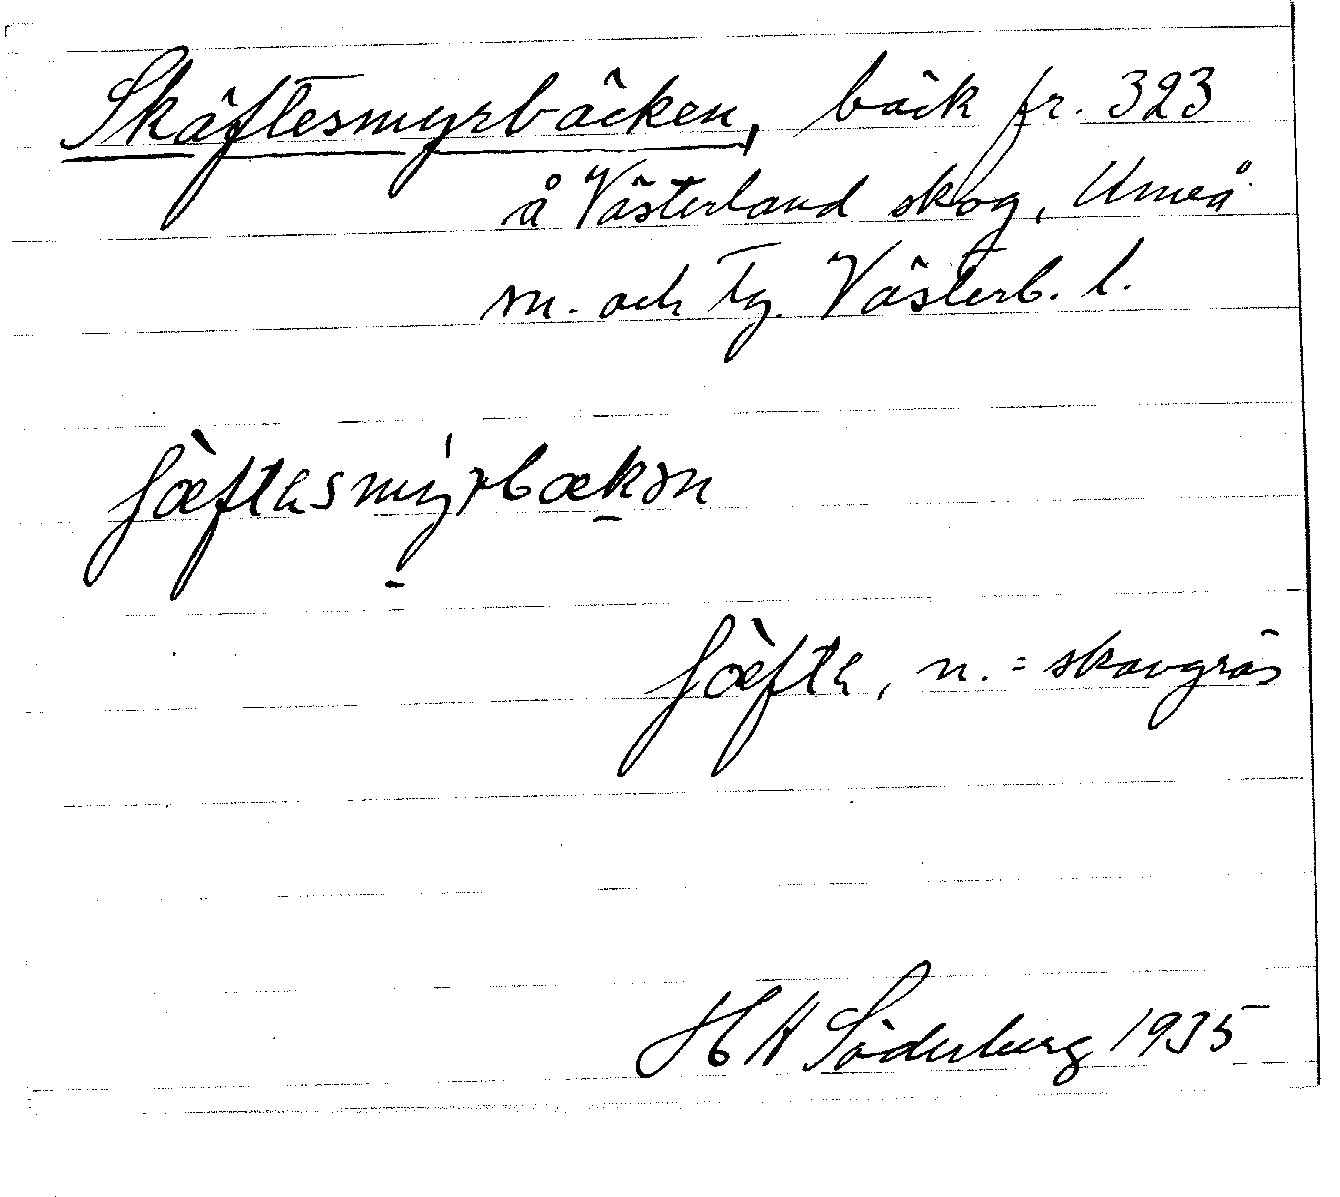 Skäftesmyrbäcken, bäck fr. 323
å Västerland skog, Umeå
sn. och tg. Västerb. l.
ʃæ̀ftasmy̠rbæk̠ən
ʃæ̀fta, n. = skavgräs
H A Söderberg 1935